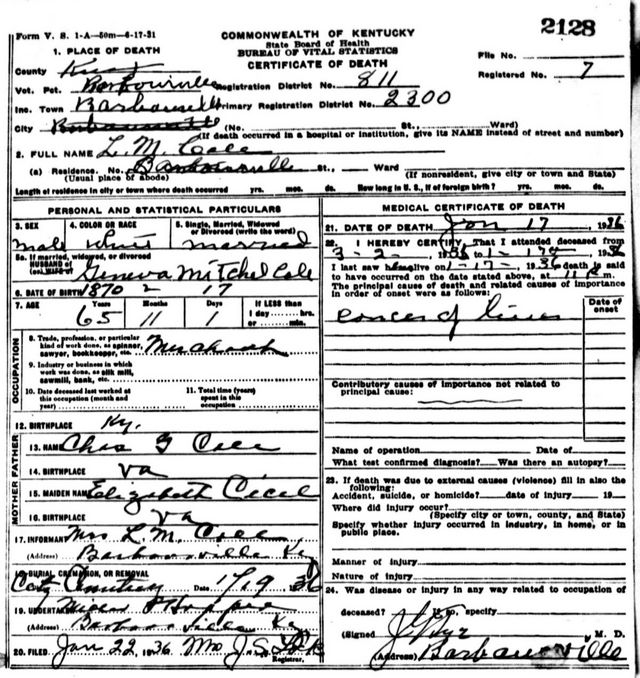 Form V. S. 1-A—50m—6-17-31
COMMONWEALTH OF KENTUCKY
State Board of Health
BUREAU OF VITAL STATISTICS
CERTIFICATE OF DEATH
2128
File No.
Registered No. 7
1. PLACE OF DEATH
County Knox
Vot. Pct. Barbourville Registration District No. 811
Inc. Town Barbourville Primary Registration District No. 2300
City Barbourville (No. St., Ward)
(If death occurred in a hospital or institution, give its NAME instead of street and number)
2. FULL NAME L. M. Cole
(a) Residence. No. Barbourville St., Ward
(Usual place of abode) (If nonresident, give city or town and State)
Length of residence in city or town where death occurred yrs. mos. ds. How long in U. S., if of foreign birth? yrs. mos. ds.
PERSONAL AND STATISTICAL PARTICULARS
3. SEX 4. COLOR OR RACE 5. Single, Married, Widowed or Divorced (write the word)
male white married
5a. If married, widowed, or divorced
HUSBAND of
(or) WIFE of Geneva Mitchel Cole
6. DATE OF BIRTH 1870 2 17
7. AGE Years Months Days If LESS than
65 11 1 1 day hrs.
or min.
OCCUPATION
8. Trade, profession, or particular
kind of work done, as spinner,
sawyer, bookkeeper, etc. Merchant
9. Industry or business in which
work was done, as silk mill,
sawmill, bank, etc.
10. Date deceased last worked at
this occupation (month and
year)
11. Total time (years)
spent in this
occupation
12. BIRTHPLACE Ky.
MOTHER FATHER
13. NAME Chas G Cole
14. BIRTHPLACE Va
15. MAIDEN NAME Elizabeth Cecil
16. BIRTHPLACE Va
17. INFORMANT Mrs L. M. Cole
(Address) Barboursville Ky
18. BURIAL, CREMATION, OR REMOVAL
Cemetery Date 1/19 36
19. UNDERTAKER Hopper
(Address) Barboursville Ky
20. FILED Jan 22, 1936 J. S.
Registrar.
MEDICAL CERTIFICATE OF DEATH
21. DATE OF DEATH Jan 17, 1936
22. I HEREBY CERTIFY, That I attended deceased from
3-2-, 1936 to 1-17, 1936
I last saw him alive on 1-17-, 1936 death is said
to have occurred on the date stated above, at 11 m.
The principal cause of death and related causes of importance
in order of onset were as follows:
Date of onset
cancer of liver
Contributory causes of importance not related to
principal cause:
Name of operation Date of
What test confirmed diagnosis? Was there an autopsy?
23. If death was due to external causes (violence) fill in also the
following:
Accident, suicide, or homicide? date of injury 19
Where did injury occur?
(Specify city or town, county, and State)
Specify whether injury occurred in industry, in home, or in
public place.
Manner of injury
Nature of injury
24. Was disease or injury in any way related to occupation of
deceased? If so, specify
(Signed M. D.
(Address) Barbourville